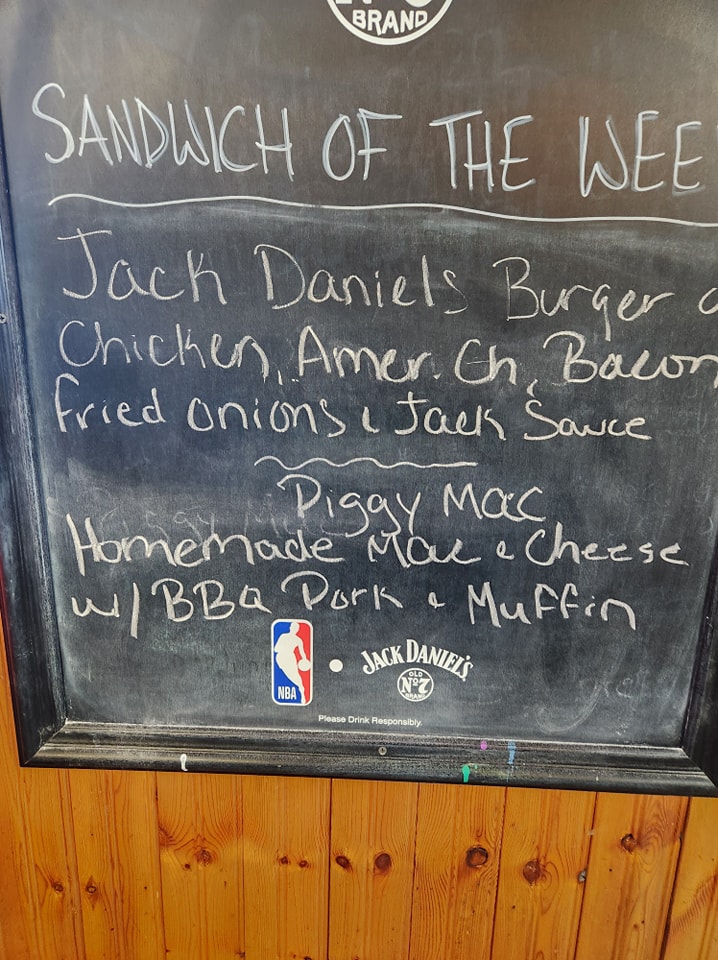 BRAND
SANDWICH OF THE WEE
Jack Daniels Burger
Chicken, Amer. Ch, Bacon
fried onions & Jack Sauce
Piggy Mac
Homemade Mac & Cheese
w/ BBQ Pork & Muffin
NBA
JACK DANIEL'S
OLD
No. 7
BRAND
Please Drink Responsibly.